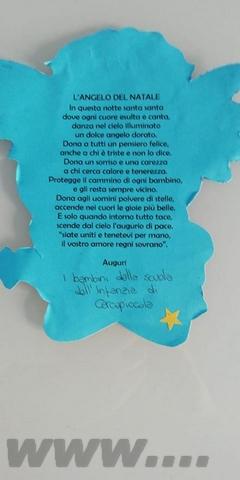 L'ANGELO DEL NATALE
In questa notte santa santa
dove ogni cuore esulta e canta,
danza nel cielo illuminato
un dolce angelo dorato.
Dona a tutti un pensiero felice,
anche a chi è triste e non lo dice.
Dona un sorriso e una carezza
a chi cerca calore e tenerezza.
Protegge il cammino di ogni bambino,
e gli resta sempre vicino.
Dona agli uomini polvere di stelle,
accende nei cuori le gioie più belle.
E solo quando intorno tutto tace,
scende dal cielo l'augurio di pace.
"siate uniti e tenetevi per mano,
il vostro amore regni sovrano".
Auguri
I bambini della scuola
dell'Infanzia di
Cercepiccola
www....